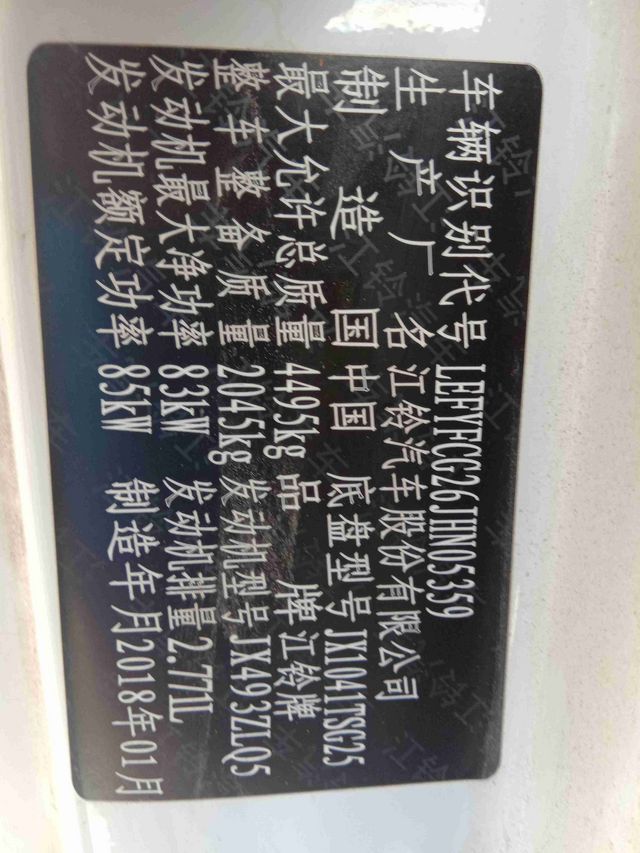 车辆识别代号 LEFYECG26JHN05359
生产厂名 江铃汽车股份有限公司
制造国 中国 底盘型号 JX1041TSG25
最大允许总质量 4495kg 品牌 江铃牌
整车整备质量 2045kg 发动机型号 JX493ZLQ5
发动机最大净功率 83kW 发动机排量 2.771L
发动机额定功率 85kW 制造年月 2018年01月